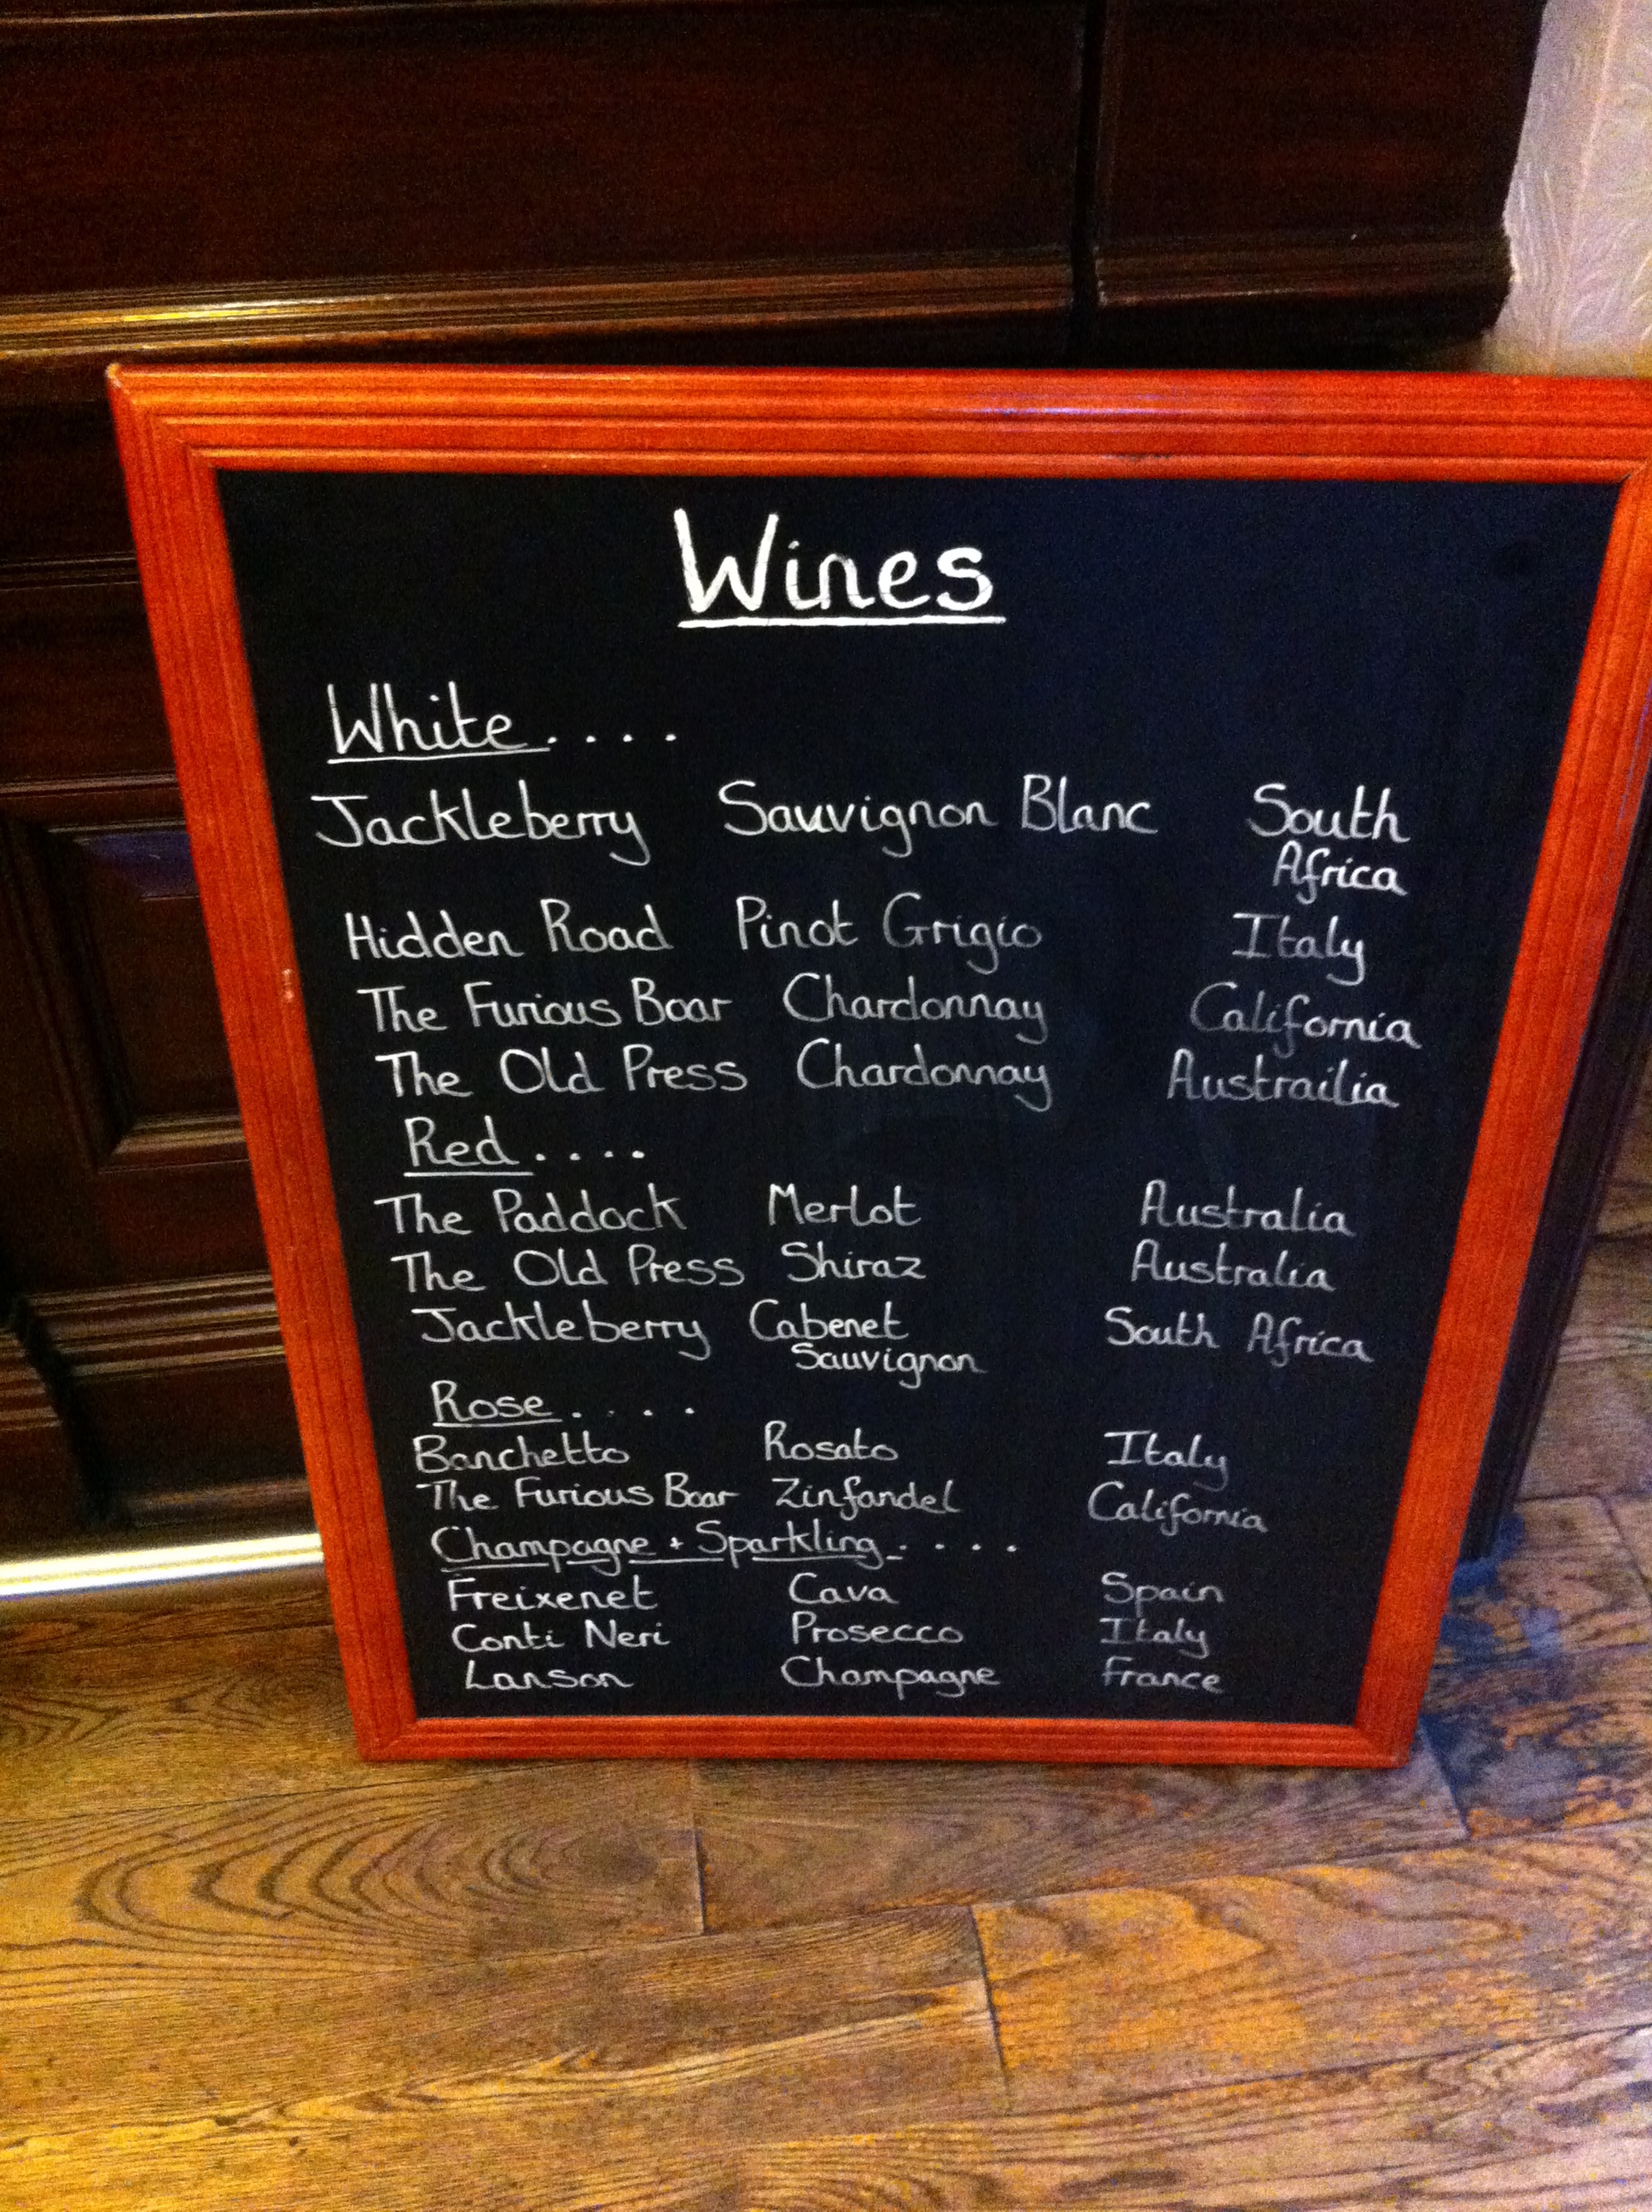 Wines
White....
Jackleberry Sauvignon Blanc South
Africa
Hidden Road Pinot Grigio Italy
The Furious Boar Chardonnay California
The Old Press Chardonnay Austrailia
Red....
The Paddock Merlot Australia
The Old Press Shiraz Australia
Jackleberry Cabenet South Africa
Sauvignon
Rose....
Banchetto Rosato Italy
The Furious Boar Zinfandel California
Champagne + Sparkling....
Freixenet Cava Spain
Conti Neri Prosecco Italy
Lanson Champagne France